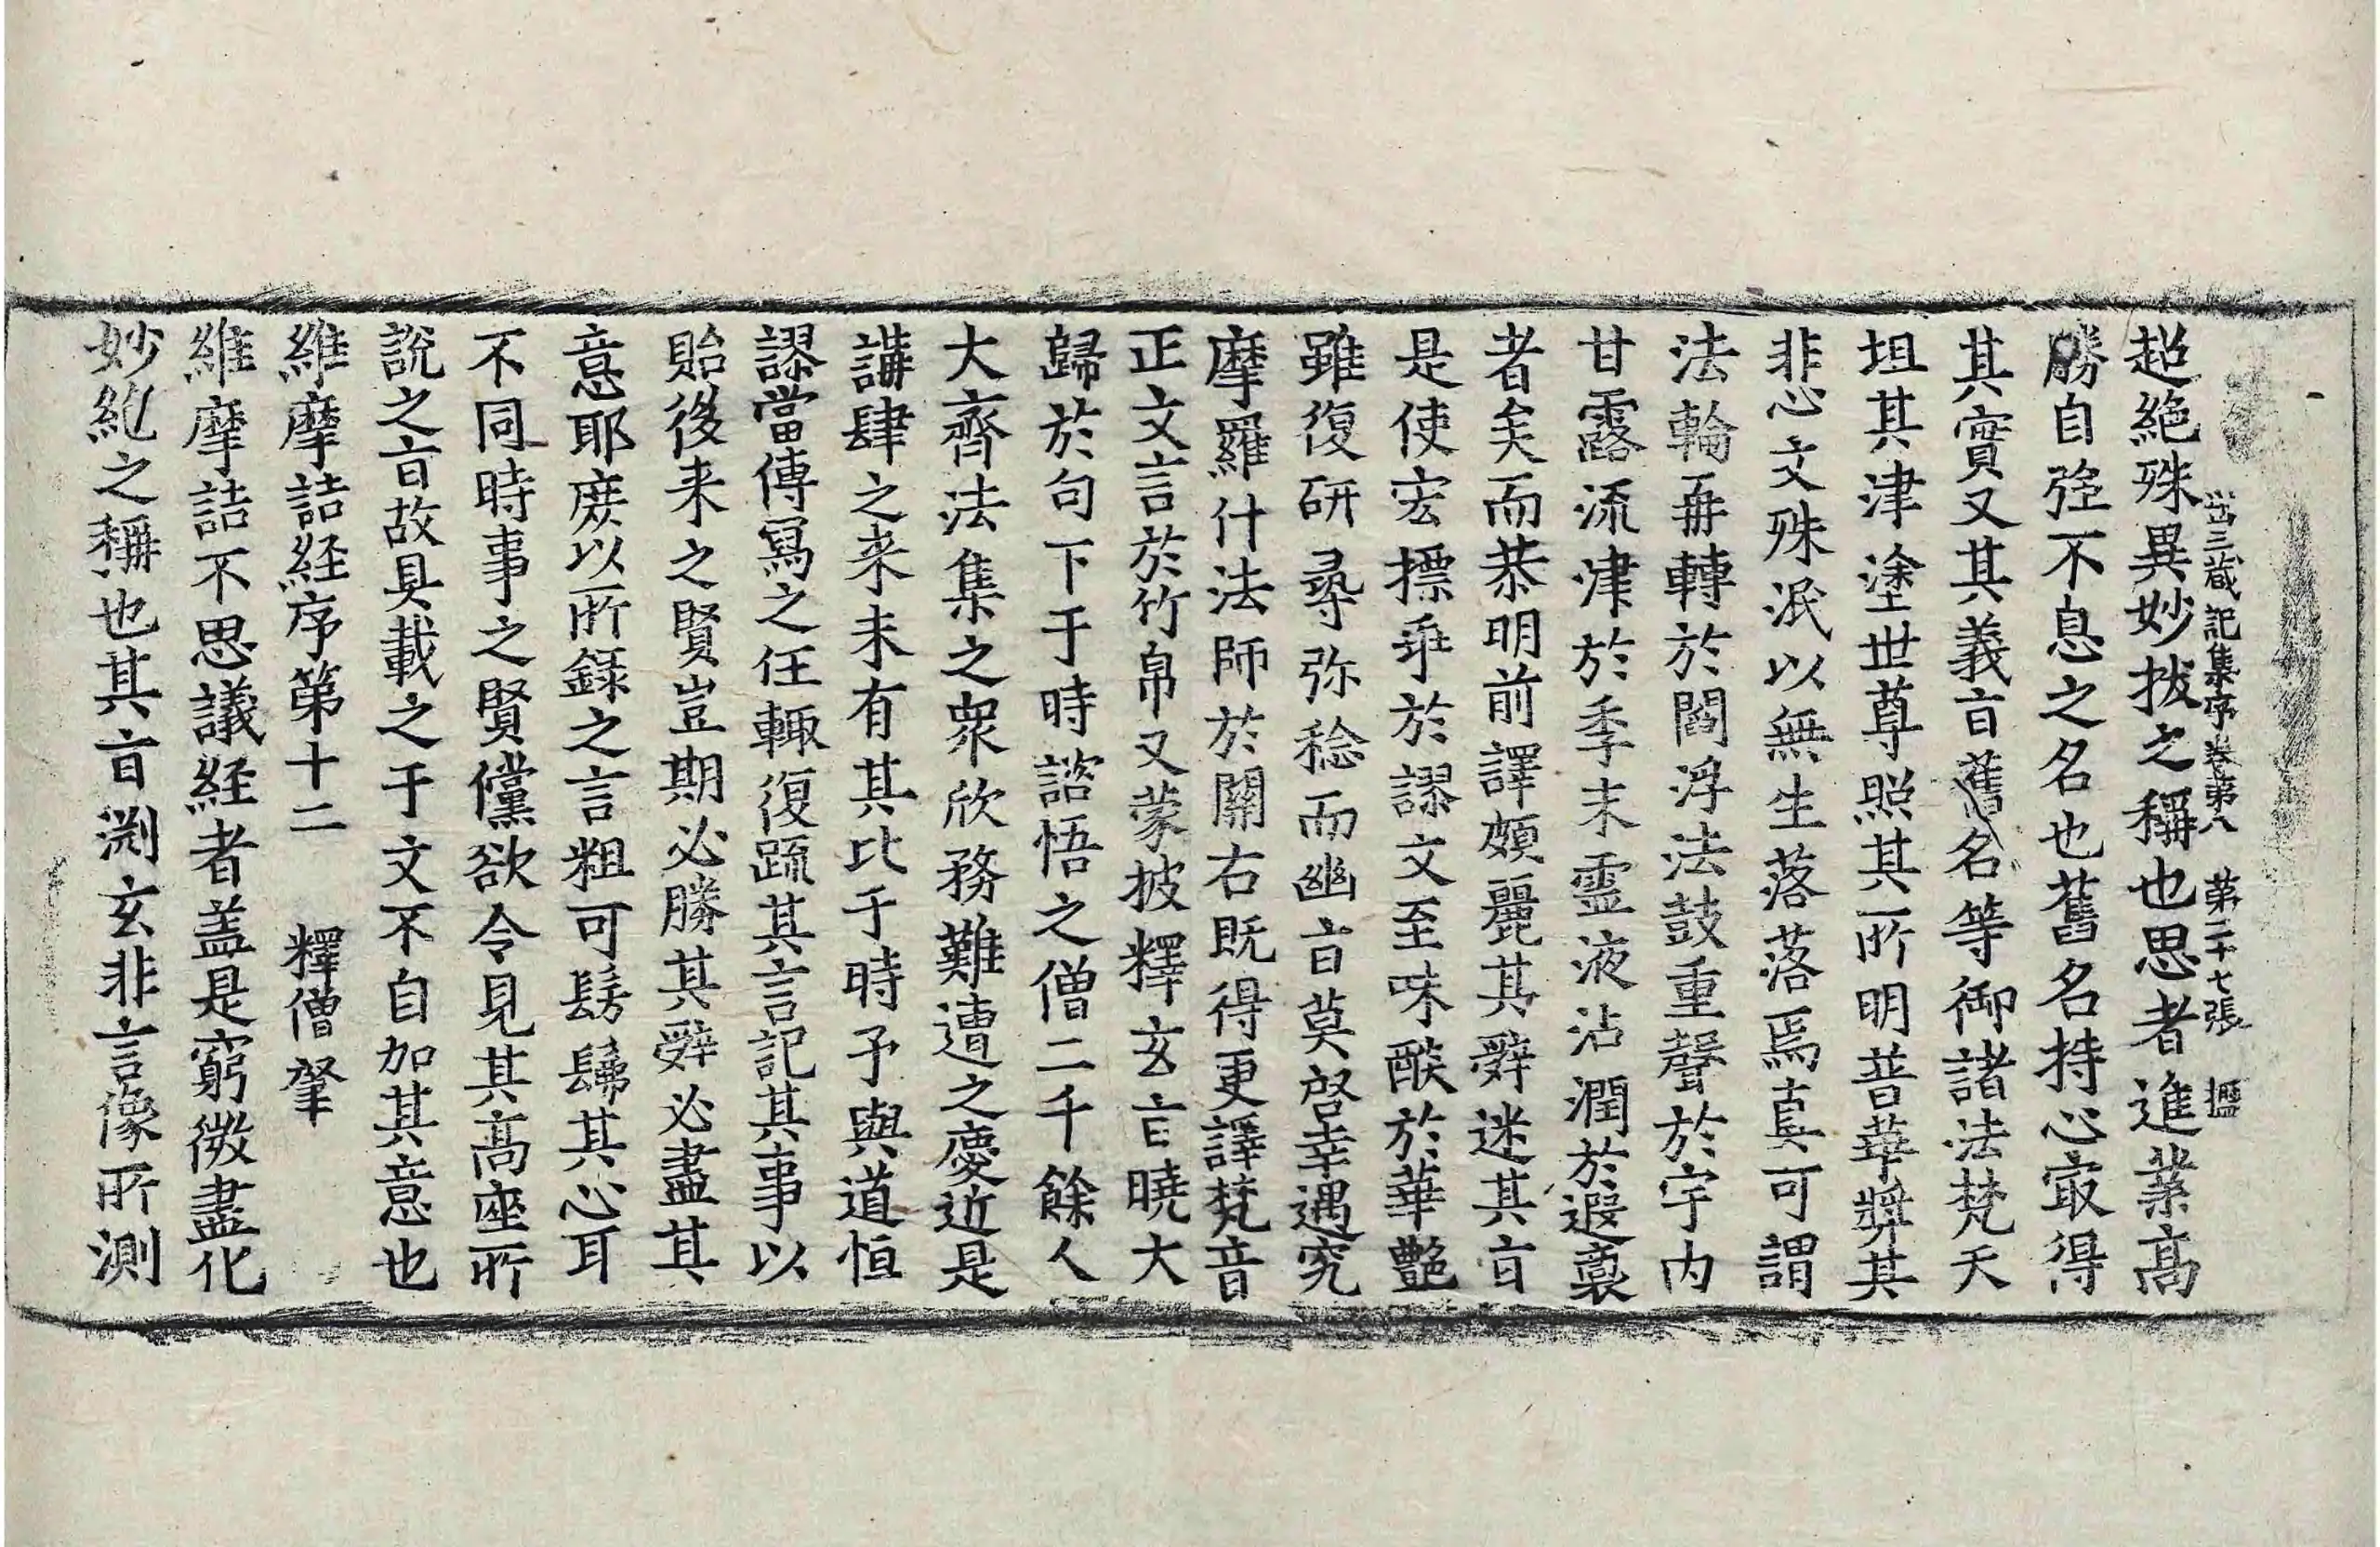 出三藏記集序卷第八 第二十七張 𣀇
超絶殊異妙拔之稱也思者進業高
勝自强不息之名也舊名持心㝡得
其實又其義旨舊名等御諸法梵天
坦其津塗世尊照其所明普華奬其
非心文殊泯以無生落落焉真可謂
法輪再轉於閻浮法鼓重聲於宇内
甘露流津於季末霊液沾潤於遐裔
者矣而恭明前譯頗麗其辭迷其旨
是使宏摽乖於謬文至味醨於華艶
雖復研尋弥稔而幽旨莫啓幸遇究
摩羅什法師於關右既得更譯梵音
正文言於竹帛又蒙披釋玄旨曉大
歸於句下于時諮悟之僧二千餘人
大齊法集之衆欣務難遭之慶近是
講肆之来未有其比于時予與道恒
謬當傳寫之任輙復疏其言記其事以
貽後来之賢豈期必勝其辭必盡其
意耶庶以所錄之言粗可髣髴其心耳
不同時事之賢儻欲令見其高座所
說之旨故具載之于文不自加其意也
維摩詰経序第十二 釋僧肇
維摩詰不思議経者盖是窮微盡化
妙絶之稱也其旨渕玄非言像所測